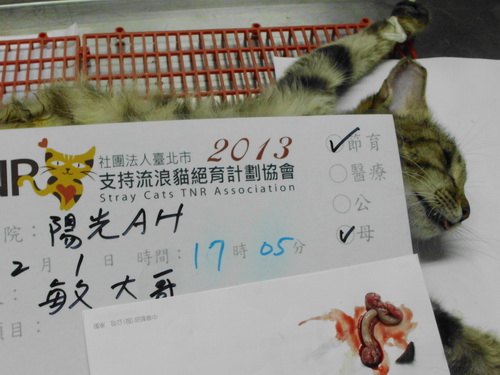 NR 社團法人臺北市 2013
支持流浪貓絕育計劃協會
Stray Cats TNR Association
節育
醫療
公
母
院：陽光AH
2月1日 時間：17時05分
：敏大哥
項目：